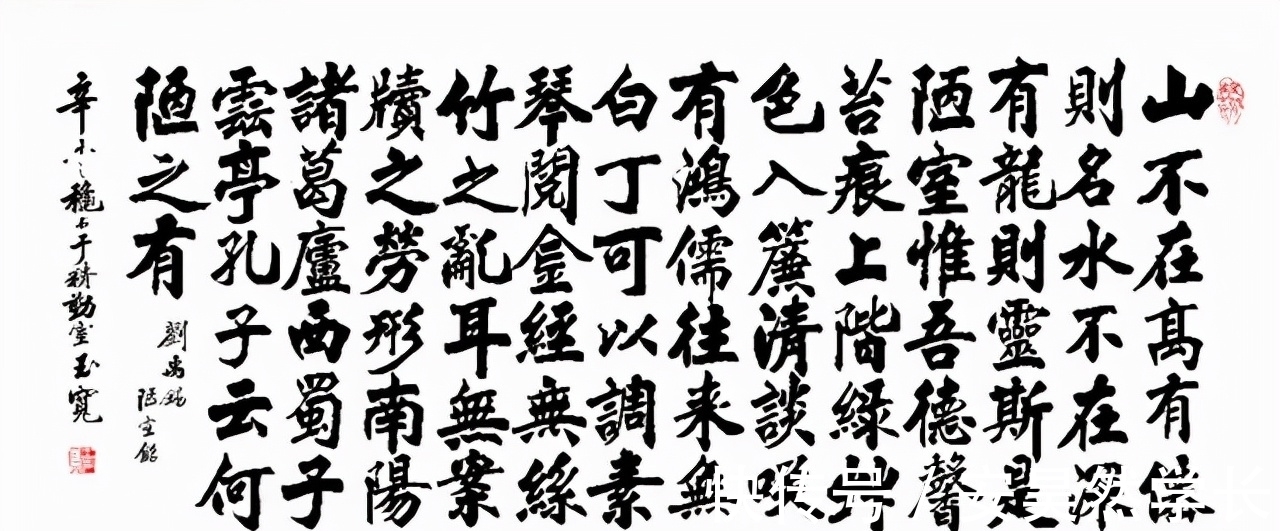 山不在高有仙
則名水不在深
有龍則靈斯是
陋室惟吾德馨
苔痕上階綠草
色入簾清談笑
有鴻儒往来無
白丁可以調素
琴閱金經無絲
竹之亂耳無案
牘之勞形南陽
諸葛廬西蜀子
雲亭孔子云何
陋之有
劉禹錫
陋室銘
辛之穐于耕勤室玉寬
快传号
学长